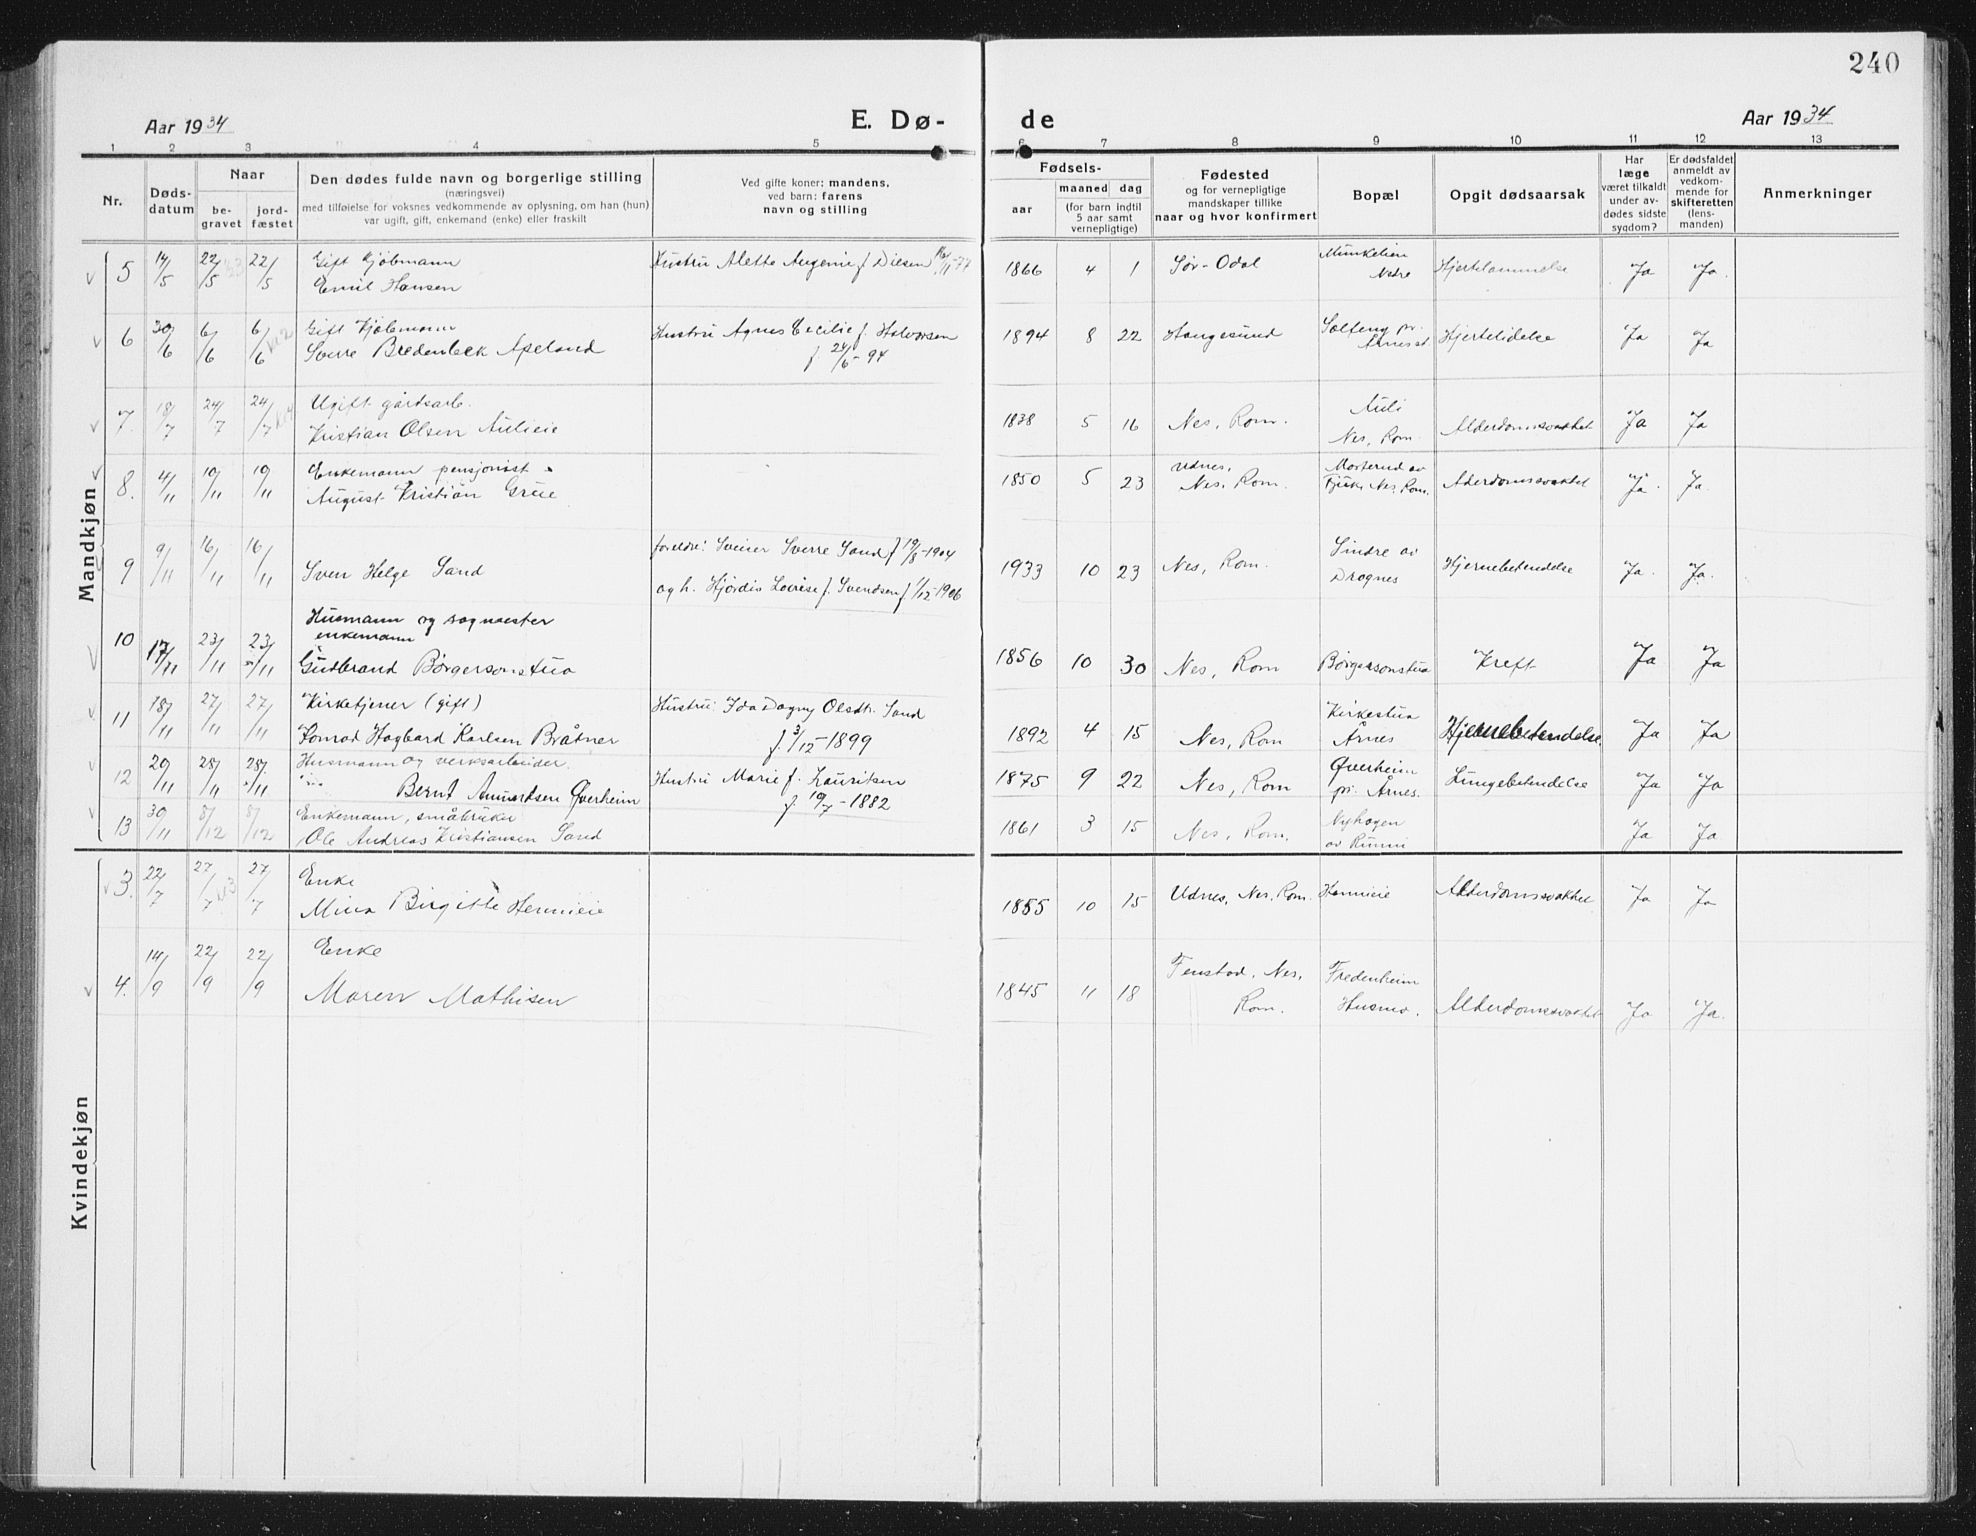 240
Aar 1934
E. Dø-
de
Aar 1934
1 2 3 4 5 6 7 8 9 10 11 12 13
Nr.
Døds-
datum
Naar
be-
gravet
jord-
fæstet
Den dødes fulde navn og borgerlige stilling
(næringsvei)
med tilføielse for voksnes vedkommende av oplysning, om han (hun)
var ugift, gift, enkemand (enke) eller fraskilt
Ved gifte koner: mandens,
ved barn: farens
navn og stilling
Fødsels-
aar
maaned dag
(for barn indtil
5 aar samt
vernepligtige)
Fødested
og for vernepligtige
mandskaper tillike
naar og hvor konfirmert
Bopæl
Opgit dødsaarsak
Har
læge
været tilkaldt
under av-
dødes sidste
sygdom?
Er dødsfaldet
anmeldt av
vedkom-
mende for
skifteretten
(lens-
manden)
Anmerkninger
Mandkjøn
5 14/5 22/5 22/5 Gift Kjøbmann
Emil Hansen
Hustru Alette Augenie f. Dilsen
1866 4 1 Sør-Odal
Munkelien
Nedre
Hjertelammelse Ja Ja.
6 30/6 6/6 6/6 Gift Kjøbmann
Sverre Bredenbek Apeland
Hustru Agnes Cecilie f. Halvorsen
f. 24/6-94
1894 8 22 Haugesund
Solfeng pr.
Årnes st.
Hjertelidelse Ja Ja
7. 18/7 24/7 24/7 Ugift gårdsarb.
Kristian Olsen Aulieie
1838 5 16 Nes, Rom.
Auli
Nes, Rom.
Alderdomssvakhet Ja Ja
8. 4/11 10/11 10/11 Enkemann pensjonist
August Kristian Grue
1850 5 23
Udnes,
Nes, Rom.
Morterud av
Fjuk, Nes, Rom.
Alderdomssvakhet Ja. Ja.
9 9/11 16/11 16/11
Sven Helge Sand
foreldre: Sveiner Sverre Sand f 19/8-1904
og h. Hjørdis Lovise f. Svendsen f 1/12-1906
1933 10 23 Nes, Rom.
Sindre av
Drognes
Hjernebetendelse Ja. Ja.
10 17/11 23/11 23/11
Husmann og sagmester
enkemann
Gudbrand Børgersonstua
1856 10 30 Nes, Rom Børgersonstua Kreft Ja Ja
11 18/11 27/11 27/11 Kirketjener (gift)
Konrad Hagbard Karlsen Bråtner
Hustru: Ida Dagny Olsdtr. Sand
f. 3/12-1899
1892 4 15 Nes, Rom
Kirkestua
Årnes
Hjernebetendelse. Ja Ja
12 20/11 28/11 28/11 Husmann og verksarbeider.
Bernt Amundsen Øverheim
Hustru Marie f. Lauritsen
f. 10/7-1882
1875 9 22 Nes, Rom
Øverheim
pr. Årnes.
Lungebetendelse Ja Ja
13 30/11 8/12 8/12 Enkemann, småbruker
Ole Andreas Kristiansen Sand
1861 3 15 Nes, Rom.
Nyhagen
av Runni
Ja Ja
Kvindekjøn
3. 22/7 27/7 27/7 Enke
Mina Birgitte Hennieie
1855 10 15 Udnes, Nes, Rom. Hennieie Alderdomssvakhet Ja Ja
4. 14/9 22/9 22/9 Enke
Maren Mathisen
1845 11 18
Fenstad, Nes,
Rom.
Fredenheim
Husmo.
Alderdomssvakhet Ja Ja.